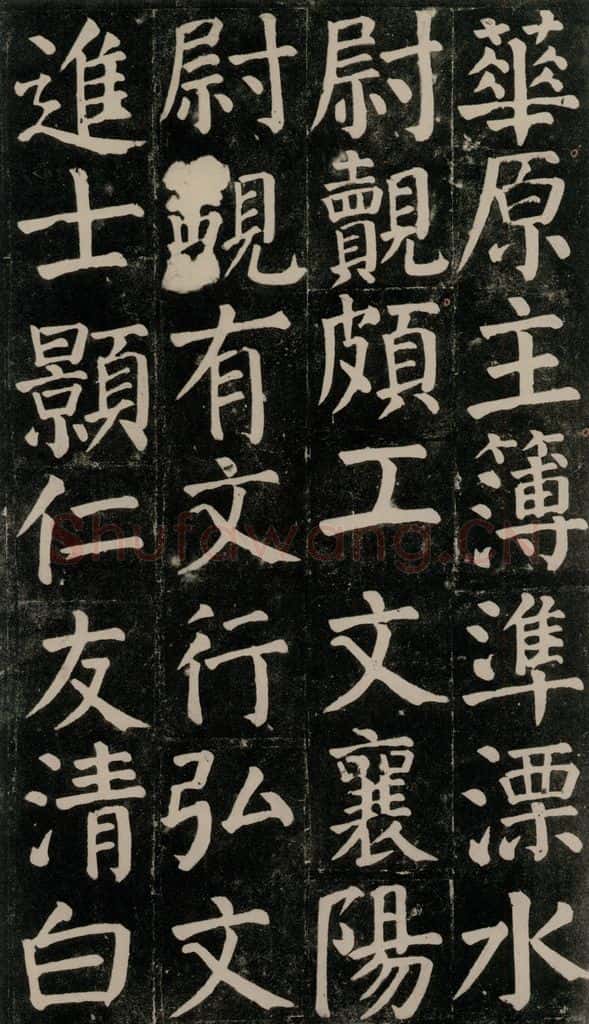 華原主簿準漂水
尉覿頗工文襄陽
尉有文行弘文
進士顥仁友清白
Shufawang.CN